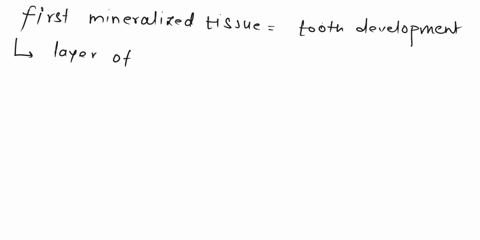 first mineralized tissue = tooth development
↳ layer of